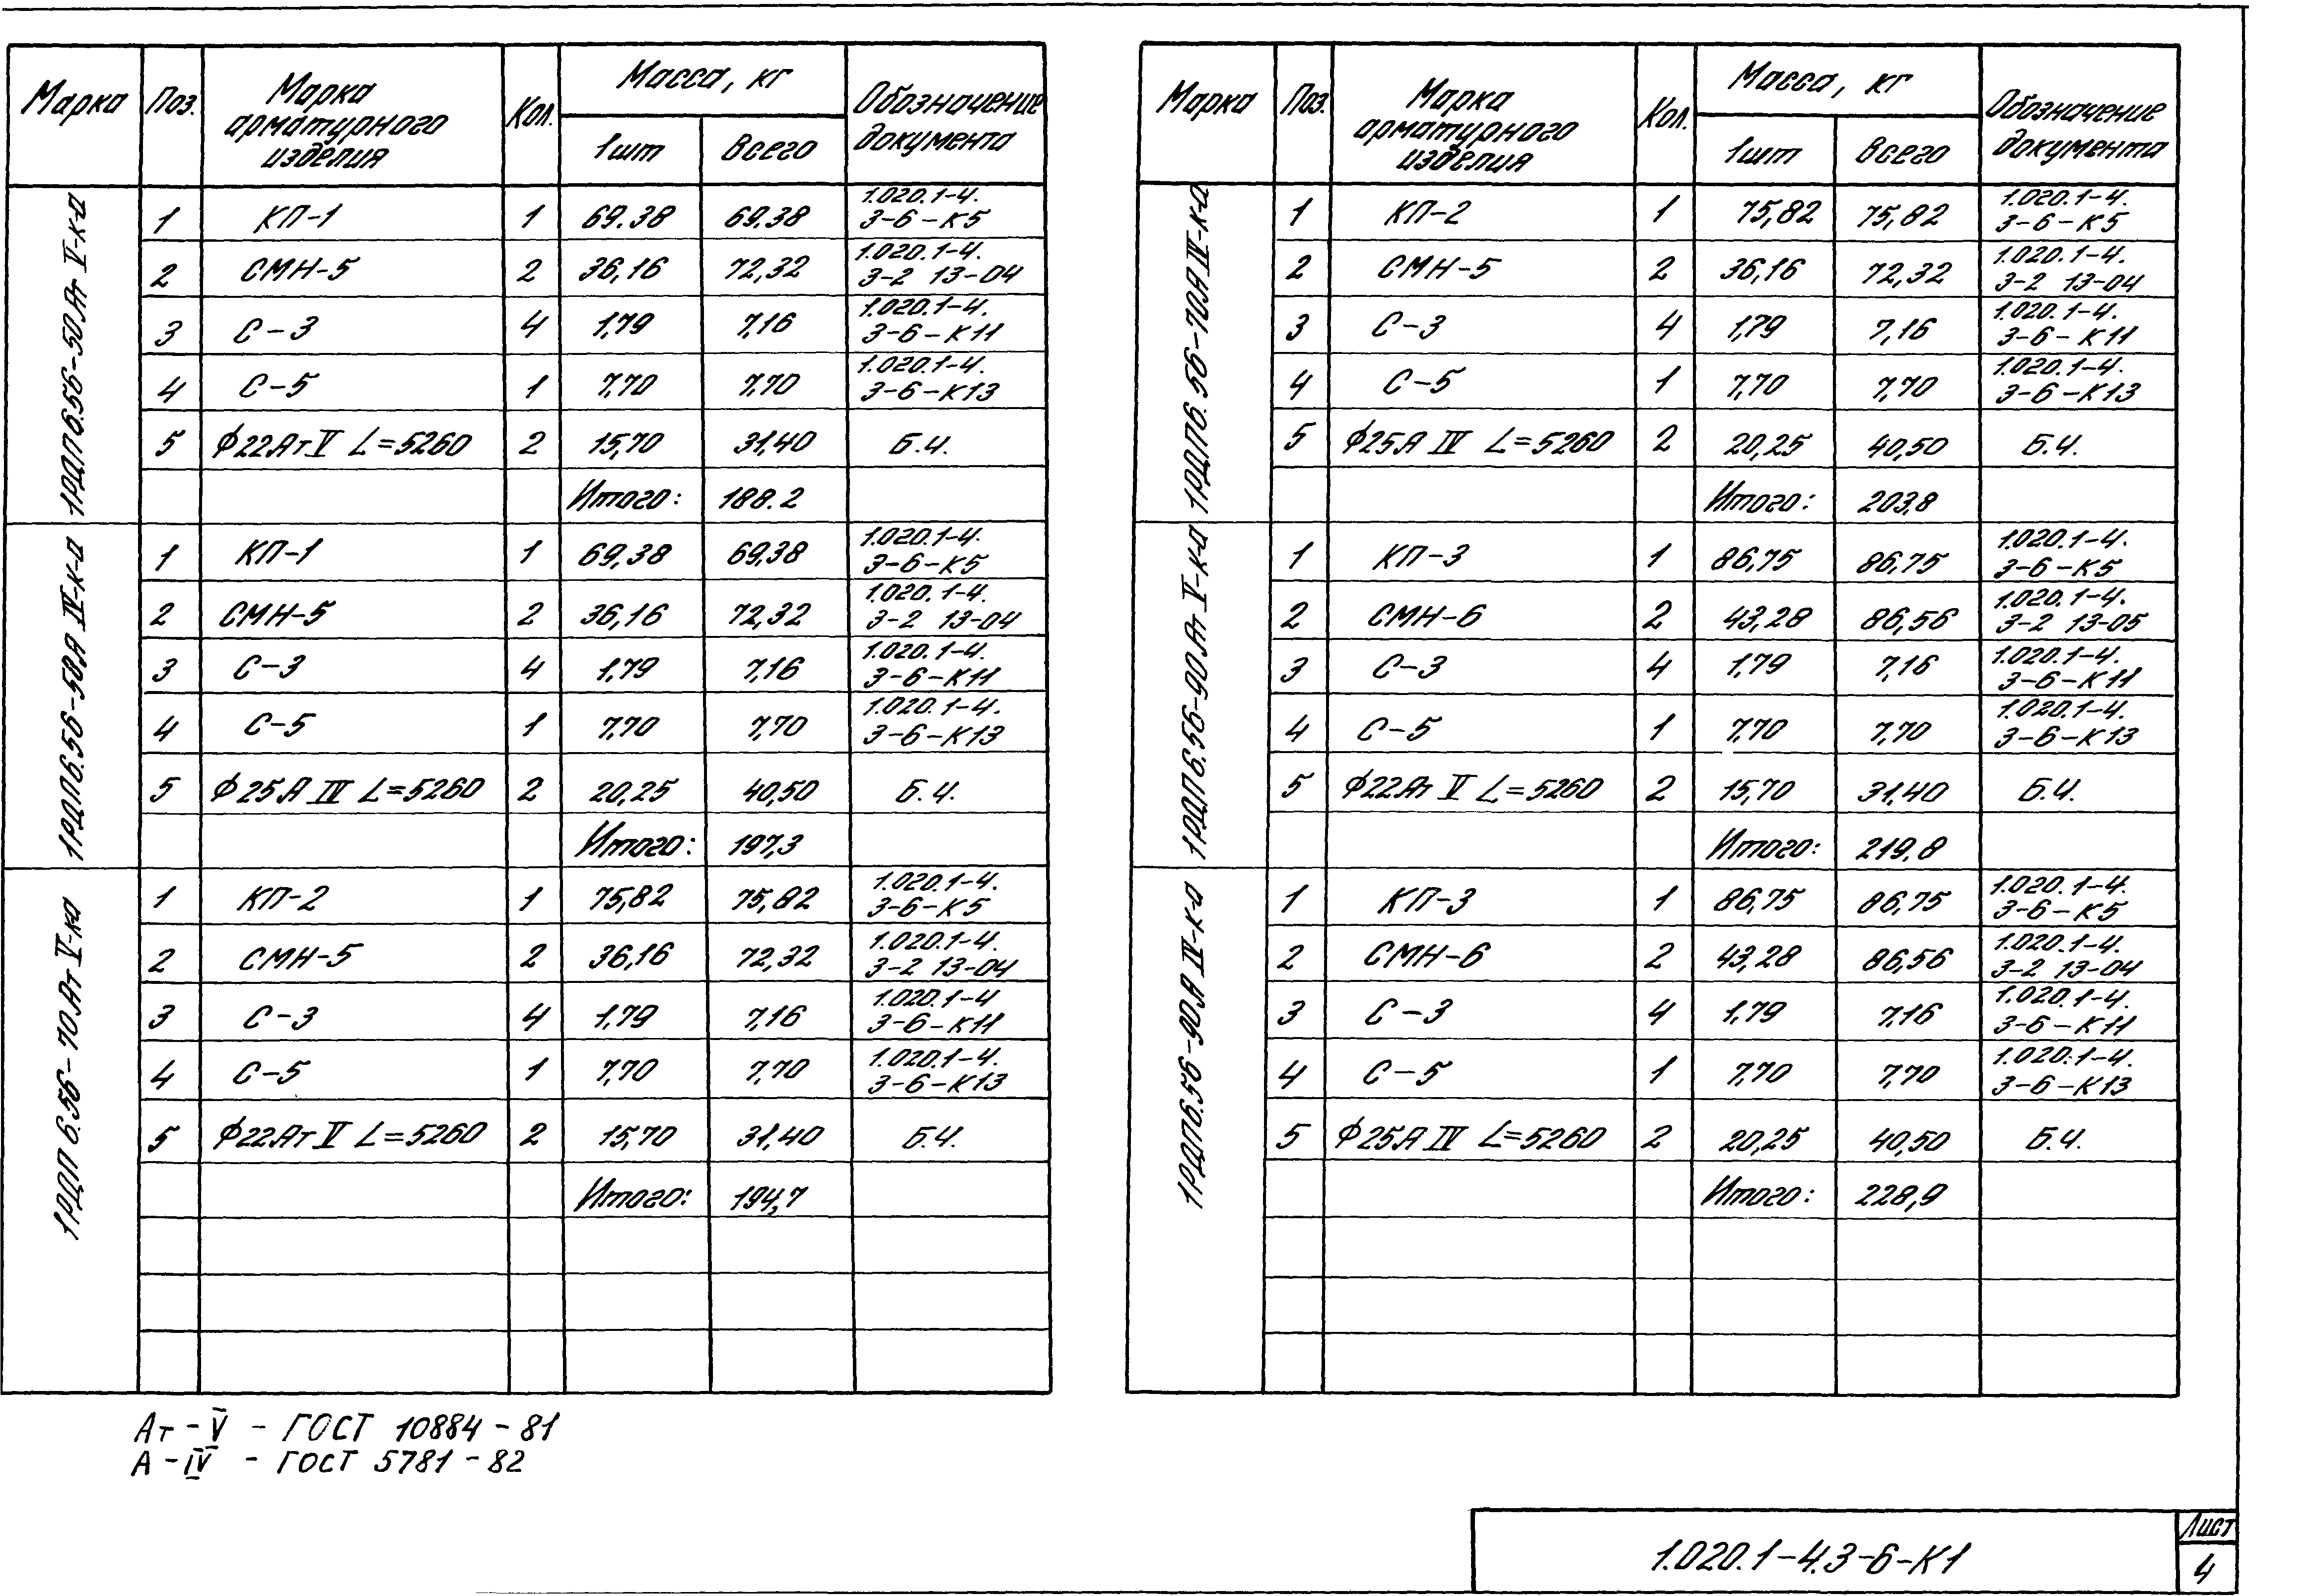 Марка Поз. Марка арматурного изделия Кол. Масса, кг 1шт Всего Обозначение документа
1РДП6.56-50Ат V-к-а
1 КП-1 1 69.38 69,38 1.020.1-4. 3-6-К5
2 СМН-5 2 36,16 72,32 1.020.1-4. 3-2 13-04
3 С-3 4 1,79 7,16 1.020.1-4. 3-6-К11
4 С-5 1 7,70 7,70 1.020.1-4. 3-6-К13
5 ϕ22Ат V L=5260 2 15,70 31,40 Б.Ч.
Итого: 188.2
1РДП6.56-50А IV-к-а
1 КП-1 1 69,38 69,38 1.020.1-4. 3-6-К5
2 СМН-5 2 36,16 72,32 1.020.1-4. 3-2 13-04
3 С-3 4 1,79 7,16 1.020.1-4. 3-6-К11
4 С-5 1 7,70 7,70 1.020.1-4. 3-6-К13
5 ϕ25А IV L=5260 2 20,25 40,50 Б.Ч.
Итого: 197,3
1РДП 6.56-70Ат V-ка
1 КП-2 1 75,82 75,82 1.020.1-4. 3-6-К5
2 СМН-5 2 36,16 72,32 1.020.1-4. 3-2 13-04
3 С-3 4 1,79 7,16 1.020.1-4 3-6-К11
4 С-5 1 7,70 7,70 1.020.1-4. 3-6-К13
5 ϕ22Ат V L=5260 2 15,70 31,40 Б.Ч.
Итого: 194,7
Марка Поз. Марка арматурного изделия Кол. Масса, кг 1шт Всего Обозначение документа
1РДП6.56-70А IV-к-а
1 КП-2 1 75,82 75,82 1.020.1-4. 3-6-К5
2 СМН-5 2 36,16 72,32 1.020.1-4. 3-2 13-04
3 С-3 4 1,79 7,16 1.020.1-4. 3-6-К11
4 С-5 1 7,70 7,70 1.020.1-4. 3-6-К13
5 ϕ25А IV L=5260 2 20,25 40,50 Б.Ч.
Итого: 203,8
1РДП6.56-90Ат V-к-а
1 КП-3 1 86,75 86,75 1.020.1-4. 3-6-К5
2 СМН-6 2 43,28 86,56 1.020.1-4. 3-2 13-05
3 С-3 4 1,79 7,16 1.020.1-4. 3-6-К11
4 С-5 1 7,70 7,70 1.020.1-4. 3-6-К13
5 ϕ22Ат V L=5260 2 15,70 31,40 Б.Ч.
Итого: 219,8
1РДП6.56-90А IV-к-а
1 КП-3 1 86,75 86,75 1.020.1-4. 3-6-К5
2 СМН-6 2 43,28 86,56 1.020.1-4. 3-2 13-04
3 С-3 4 1,79 7,16 1.020.1-4. 3-6-К11
4 С-5 1 7,70 7,70 1.020.1-4. 3-6-К13
5 ϕ25А IV L=5260 2 20,25 40,50 Б.Ч.
Итого: 228,9
Ат-V - ГОСТ 10884-81
А-IV - ГОСТ 5781-82
1.020.1-4.3-6-К1
Лист
4